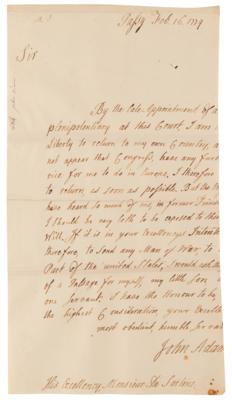 Passy Feb. 16. 1779
Sir
By the late Appointment of a
plenipotentiary at this Court, I am
Liberty to return to my own Country, a
not appear that Congress, have any fur
vice for me to do in Europe, I therefore
to return, as soon as possible. But the
have heard so much of me, in former
I should be very loth to be exposed to their
Will. If it is in your Excellencys
therefore, to send any Man of War to
Part of the united States, I would ask the
of a Passage for myself, my little son
one servant. I have the Honour to be
the highest Consideration your Excelle
most obedient, humble servant
John Adam
His Excellency Monsieur De Sartine